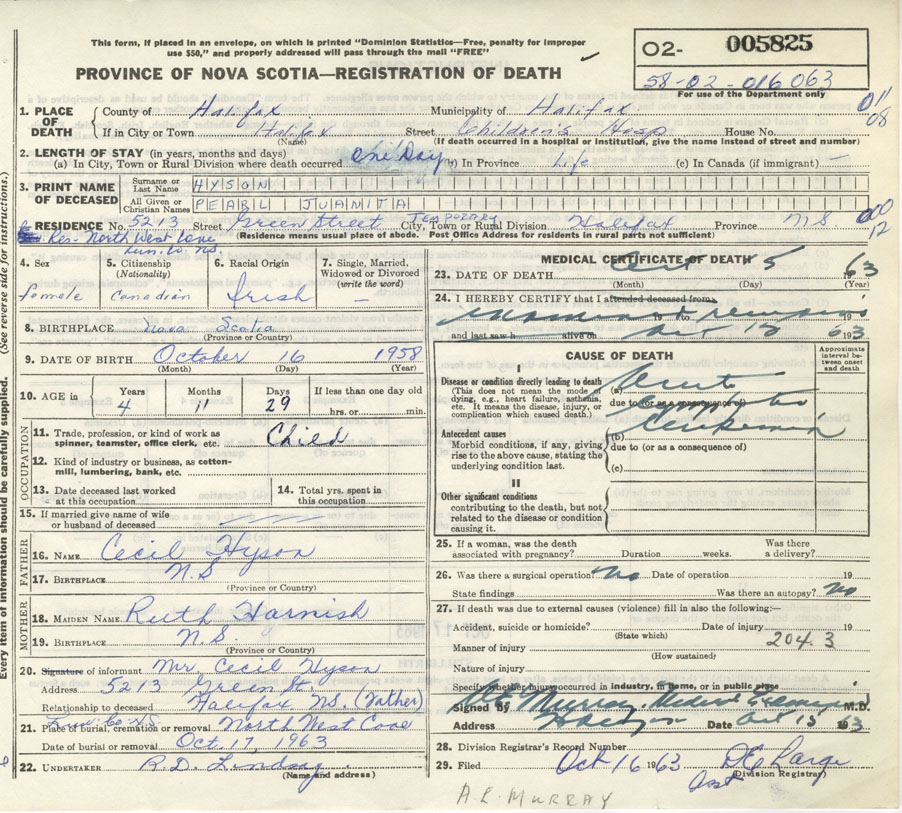 This form, if placed in an envelope, on which is printed "Dominion Statistics—Free, penalty for improper
use $50," and properly addressed will pass through the mail "FREE"
PROVINCE OF NOVA SCOTIA—REGISTRATION OF DEATH
O2- 005825
58-02-016063
For use of the Department only
011
08
1. PLACE OF DEATH County of Halifax Municipality of Halifax
If in City or Town Halifax Street Children's Hosp House No.
(Name) (If death occurred in a hospital or institution, give the name instead of street and number)
2. LENGTH OF STAY (in years, months and days)
(a) In City, Town or Rural Division where death occurred One Day (b) In Province Life (c) In Canada (if immigrant) —
3. PRINT NAME OF DECEASED Surname or Last Name HYSON
All Given or Christian Names PEARL JUANITA
RESIDENCE No. 5213 Street Green Street TEMPORARY City, Town or Rural Division Halifax Province NS
000
12
Res- North West Cove (Residence means usual place of abode. Post Office Address for residents in rural parts not sufficient)
Lun. Co. NS.
4. Sex female
5. Citizenship (Nationality) Canadian
6. Racial Origin Irish
7. Single, Married, Widowed or Divorced (write the word) —
8. BIRTHPLACE Nova Scotia
(Province or Country)
9. DATE OF BIRTH October 16 1958
(Month) (Day) (Year)
10. AGE in Years 4 Months 11 Days 29 If less than one day old hrs. or min.
OCCUPATION
11. Trade, profession, or kind of work as spinner, teamster, office clerk, etc. Child
12. Kind of industry or business, as cotton-mill, lumbering, bank, etc.
13. Date deceased last worked at this occupation
14. Total yrs. spent in this occupation
15. If married give name of wife or husband of deceased
FATHER
16. NAME Cecil Hyson
17. BIRTHPLACE N.S
(Province or Country)
MOTHER
18. MAIDEN NAME Ruth Harnish
19. BIRTHPLACE N.S.
(Province or Country)
20. Signature of informant Mr. Cecil Hyson
Address 5213 Green St.
Relationship to deceased Halifax NS. (Father)
Lun. Co. N.S.
21. Place of burial, cremation or removal North West Cove
Date of burial or removal Oct. 17, 1963
22. UNDERTAKER R.D. Lindsay
(Name and address)
Every item of information should be carefully supplied. (See reverse side for instructions.)
MEDICAL CERTIFICATE OF DEATH
23. DATE OF DEATH Oct 15 63
(Month) (Day) (Year)
24. I HEREBY CERTIFY that I attended deceased from
examined remains to 19
and last saw h alive on Oct 15 63 193
CAUSE OF DEATH
Approximate interval between onset and death
I
Disease or condition directly leading to death
(This does not mean the mode of dying, e.g., heart failure, asthenia, etc. It means the disease, injury, or complication which caused death.)
(a) Acute
due to (or as a consequence of)
Antecedent causes
Morbid conditions, if any, giving rise to the above cause, stating the underlying condition last.
(b) Leukemia
due to (or as a consequence of)
(c)
II
Other significant conditions
contributing to the death, but not related to the disease or condition causing it.
25. If a woman, was the death associated with pregnancy? Duration weeks. Was there a delivery?
26. Was there a surgical operation? No Date of operation 19
State findings Was there an autopsy? No
27. If death was due to external causes (violence) fill in also the following:—
Accident, suicide or homicide? Date of injury 19
(State which)
204.3
Manner of injury
(How sustained)
Nature of injury
Specify whether injury occurred in industry, in home, or in public place
Signed by Murray, Medical Examiner M.D.
Address Date Oct 15 1963
28. Division Registrar's Record Number
29. Filed Oct 16 1963 Large
Asst (Division Registrar)
A.L. MURRAY